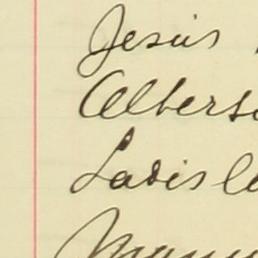 Jesús
Alberso
Ladisla
Manu